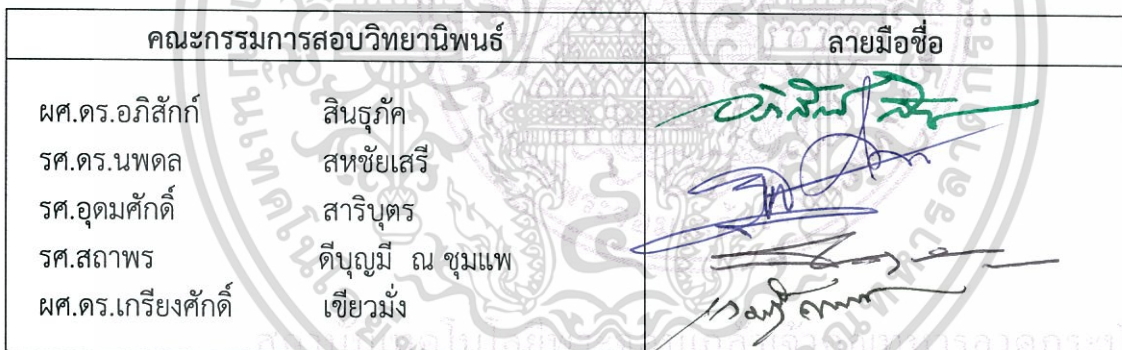 คณะกรรมการสอบวิทยานิพนธ์ ลายมือชื่อ
ผศ.ดร.อภิสักก์ สินธุภัค
รศ.ดร.นพดล สหชัยเสรี
รศ.อุดมศักดิ์ สาริบุตร
รศ.สถาพร ดีบุญมี ณ ชุมแพ
ผศ.ดร.เกรียงศักดิ์ เขียวมั่ง